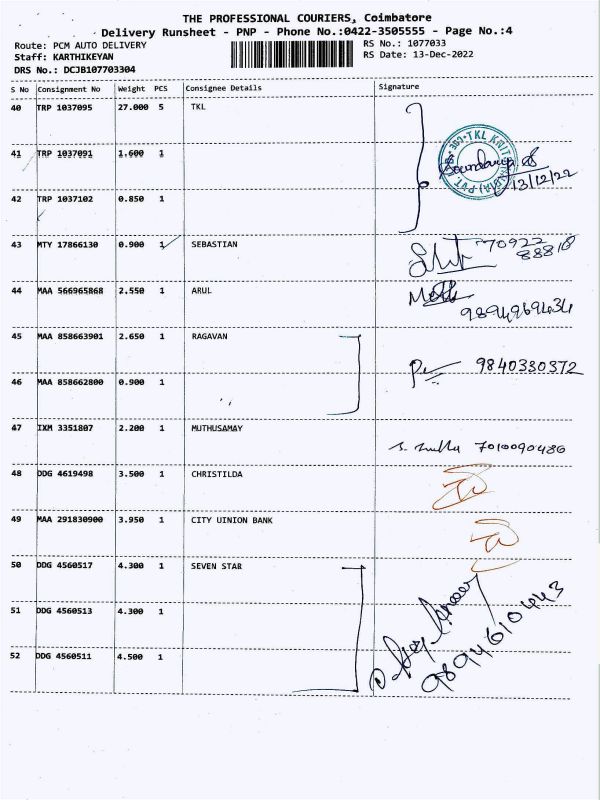 THE PROFESSIONAL COURIERS, Coimbatore
Delivery Runsheet - PNP - Phone No.:0422-3505555 - Page No.:4
Route: PCM AUTO DELIVERY
RS No.: 1077033
Staff: KARTHIKEYAN
RS Date: 13-Dec-2022
DRS No.: DCJB107703304
S No Consignment No Weight PCS Consignee Details Signature
40 TRP 1037095 27.000 5 TKL
41 TRP 1037091 1.600 1
13/12/22
42 TRP 1037102 0.850 1
43 MTY 17866130 0.900 1 SEBASTIAN 70922
88818
44 MAA 566965868 2.550 1 ARUL
9894969434
45 MAA 858663901 2.650 1 RAGAVAN
9840330372
46 MAA 858662800 0.900 1
47 IXM 3351807 2.200 1 MUTHUSAMAY
7010090486
48 DDG 4619498 3.500 1 CHRISTILDA
49 MAA 291830900 3.950 1 CITY UINION BANK
50 DDG 4560517 4.300 1 SEVEN STAR
51 DDG 4560513 4.300 1
52 DDG 4560511 4.500 1
9894610443